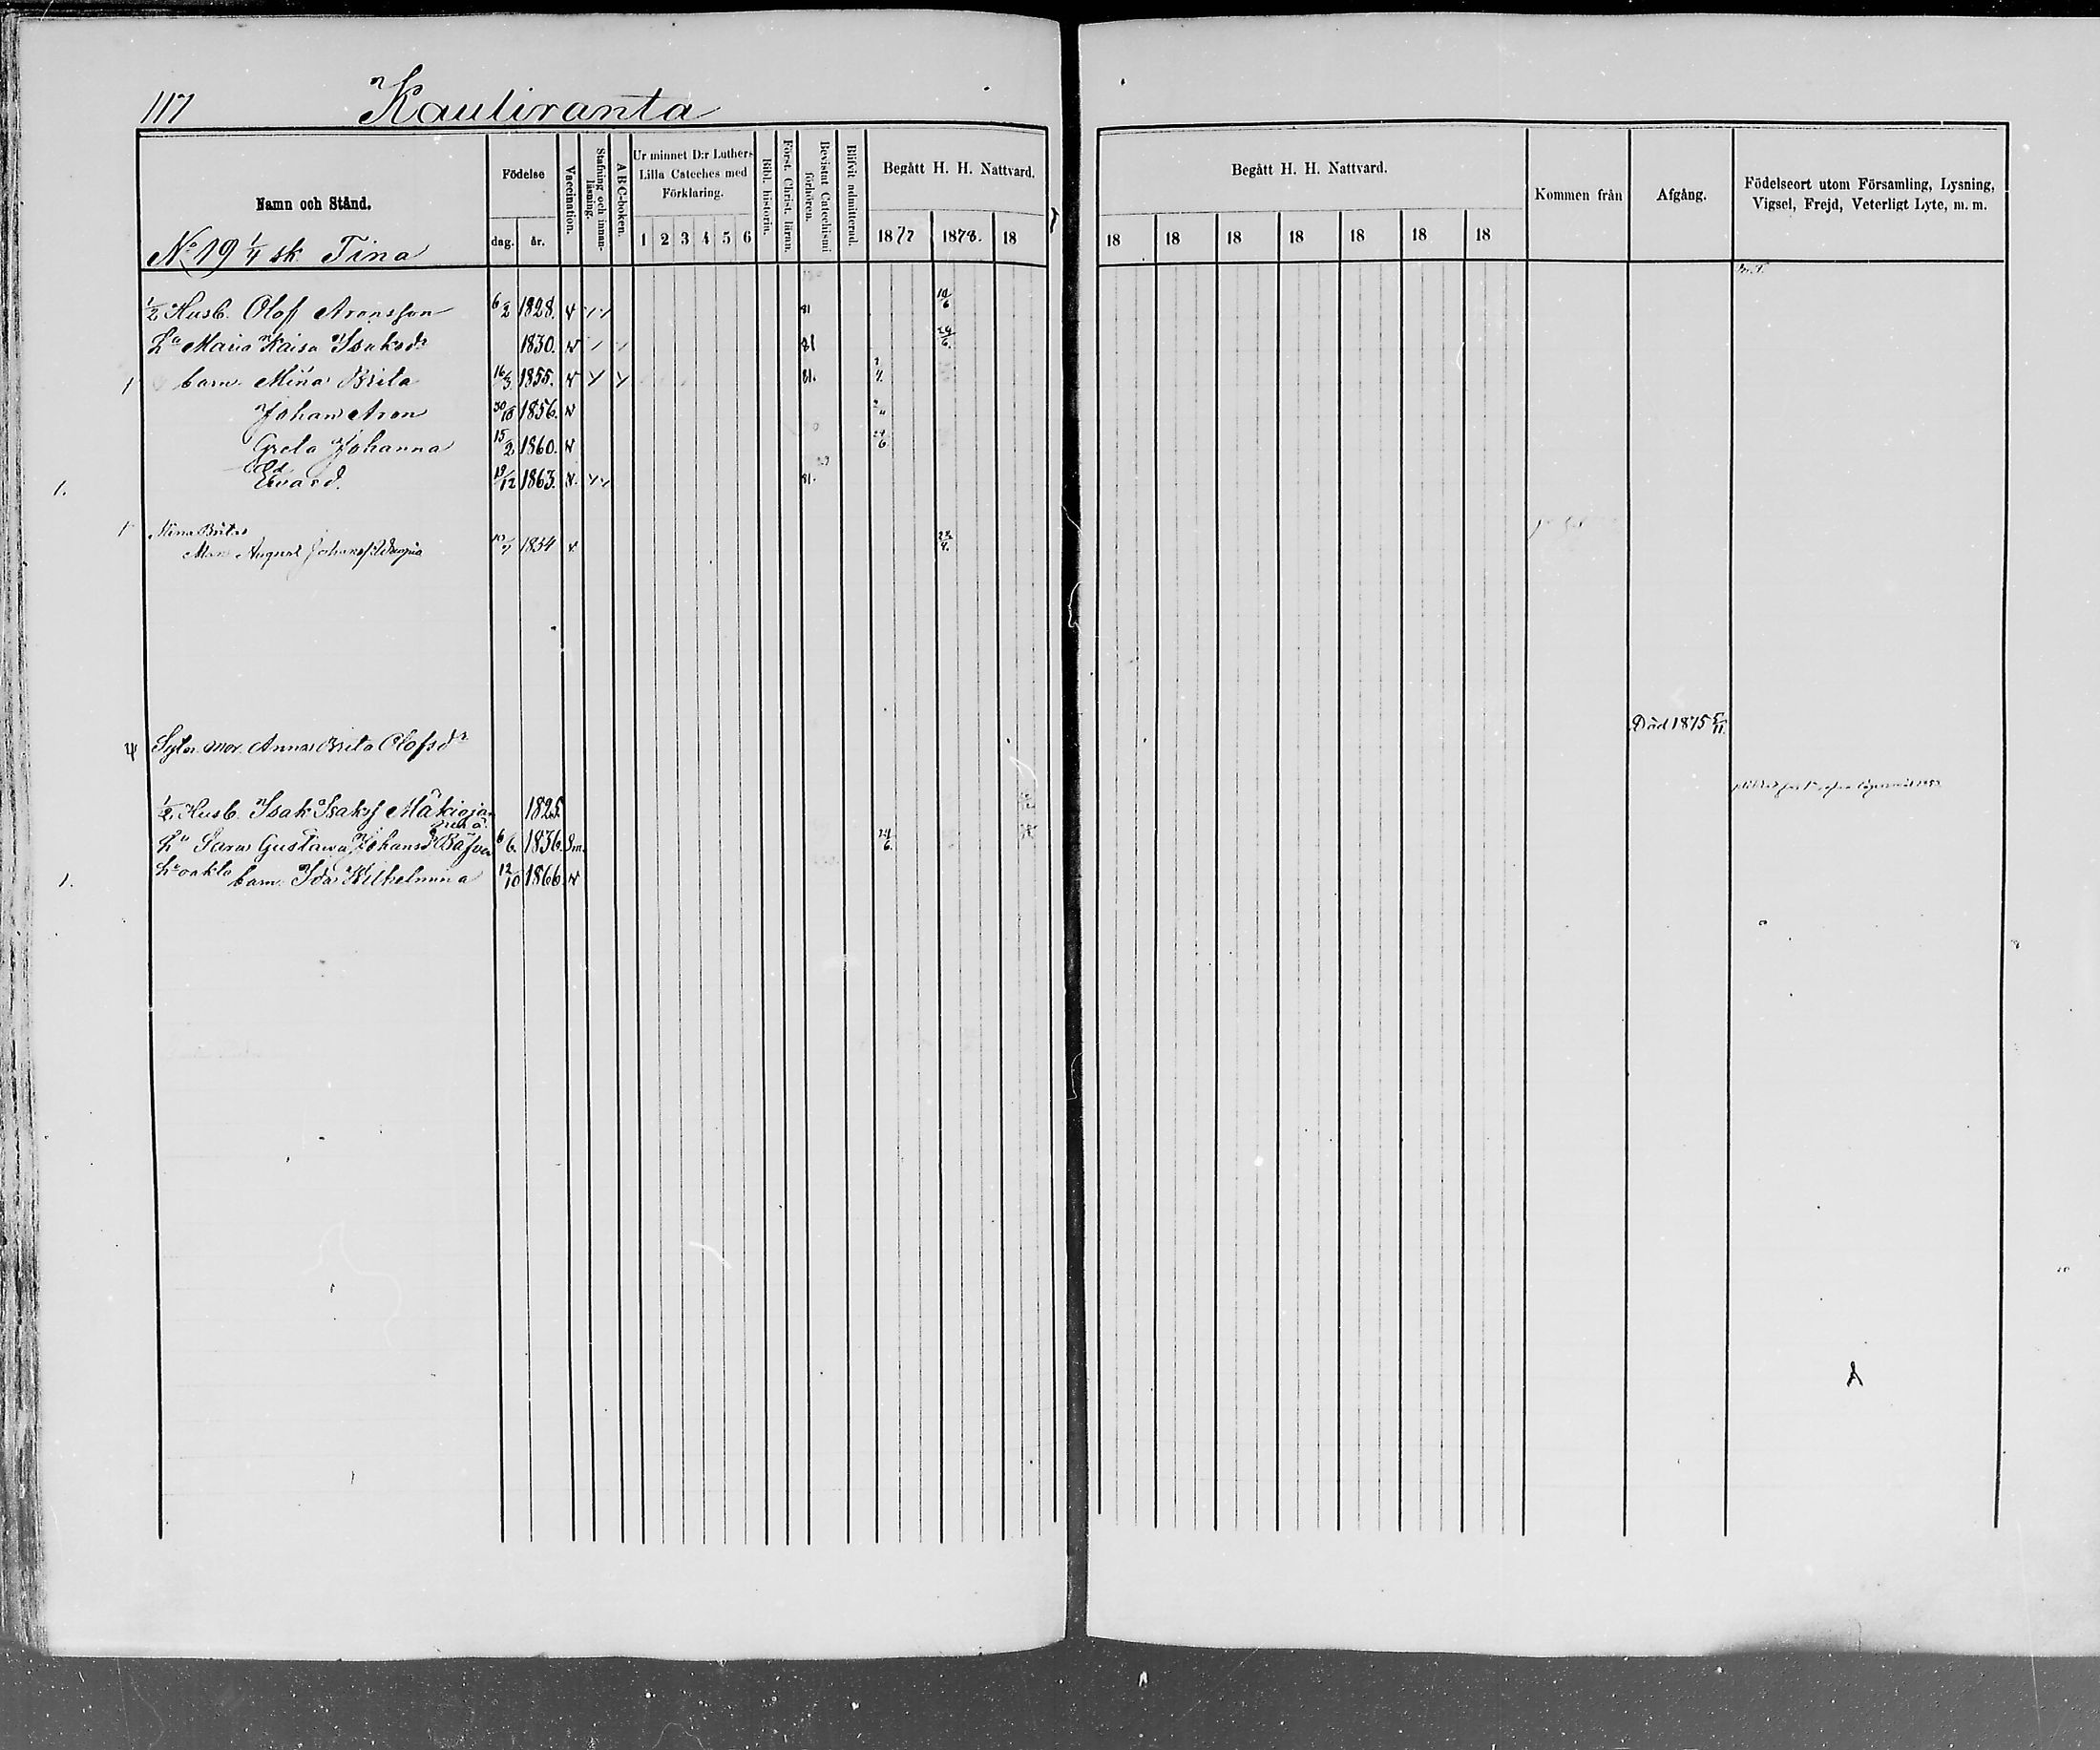 117 Kauliranta
Namn och Stånd.
Födelse
dag. år.
Vaccination.
Stafning och innan-läsning.
A B C-boken.
Ur minnet D:r Luthers
Lilla Cateches med
Förklaring.
1 2 3 4 5 6
Bibl. historia.
Först. Christ. läran.
Bevistat Catechismi förhören.
Blifvit admitterad.
Begått H. H. Nattvard.
1877 1878. 18
Begått H. H. Nattvard.
18 18 18 18 18 18 18
Kommen från
Afgång.
Födelseort utom Församling, Lysning,
Vigsel, Frejd, Veterligt Lyte, m. m.
No 19 1/4 sk Tina
1/2 Husb. Olof Aronsson 6/2 1828. v 81 14/6
Hu Maria Kaisa Isaksdr 1830. v 81 24/6
1 barn Mina Brita 16/3 1855. v 81. 2/4
Johan Aron 30/10 1856. v
Greta Johanna 15/2 1860. v 24/6
Ed
1. Evard. 19/12 1863. v. 81.
1 Mina Britas
Man August Johanss 10/7 1854 v. 22/4.
Död 1875 5/11.
Syter. mor Anna Brita Olofsdr
1/2 Husb. Isak Isaks Mäkiojan 1825.
Hu Sara Gustawa Johansdr 6/6. 1836. Sm. 24/6.
1. barn Ida Wilhelmina 12/10 1866. v